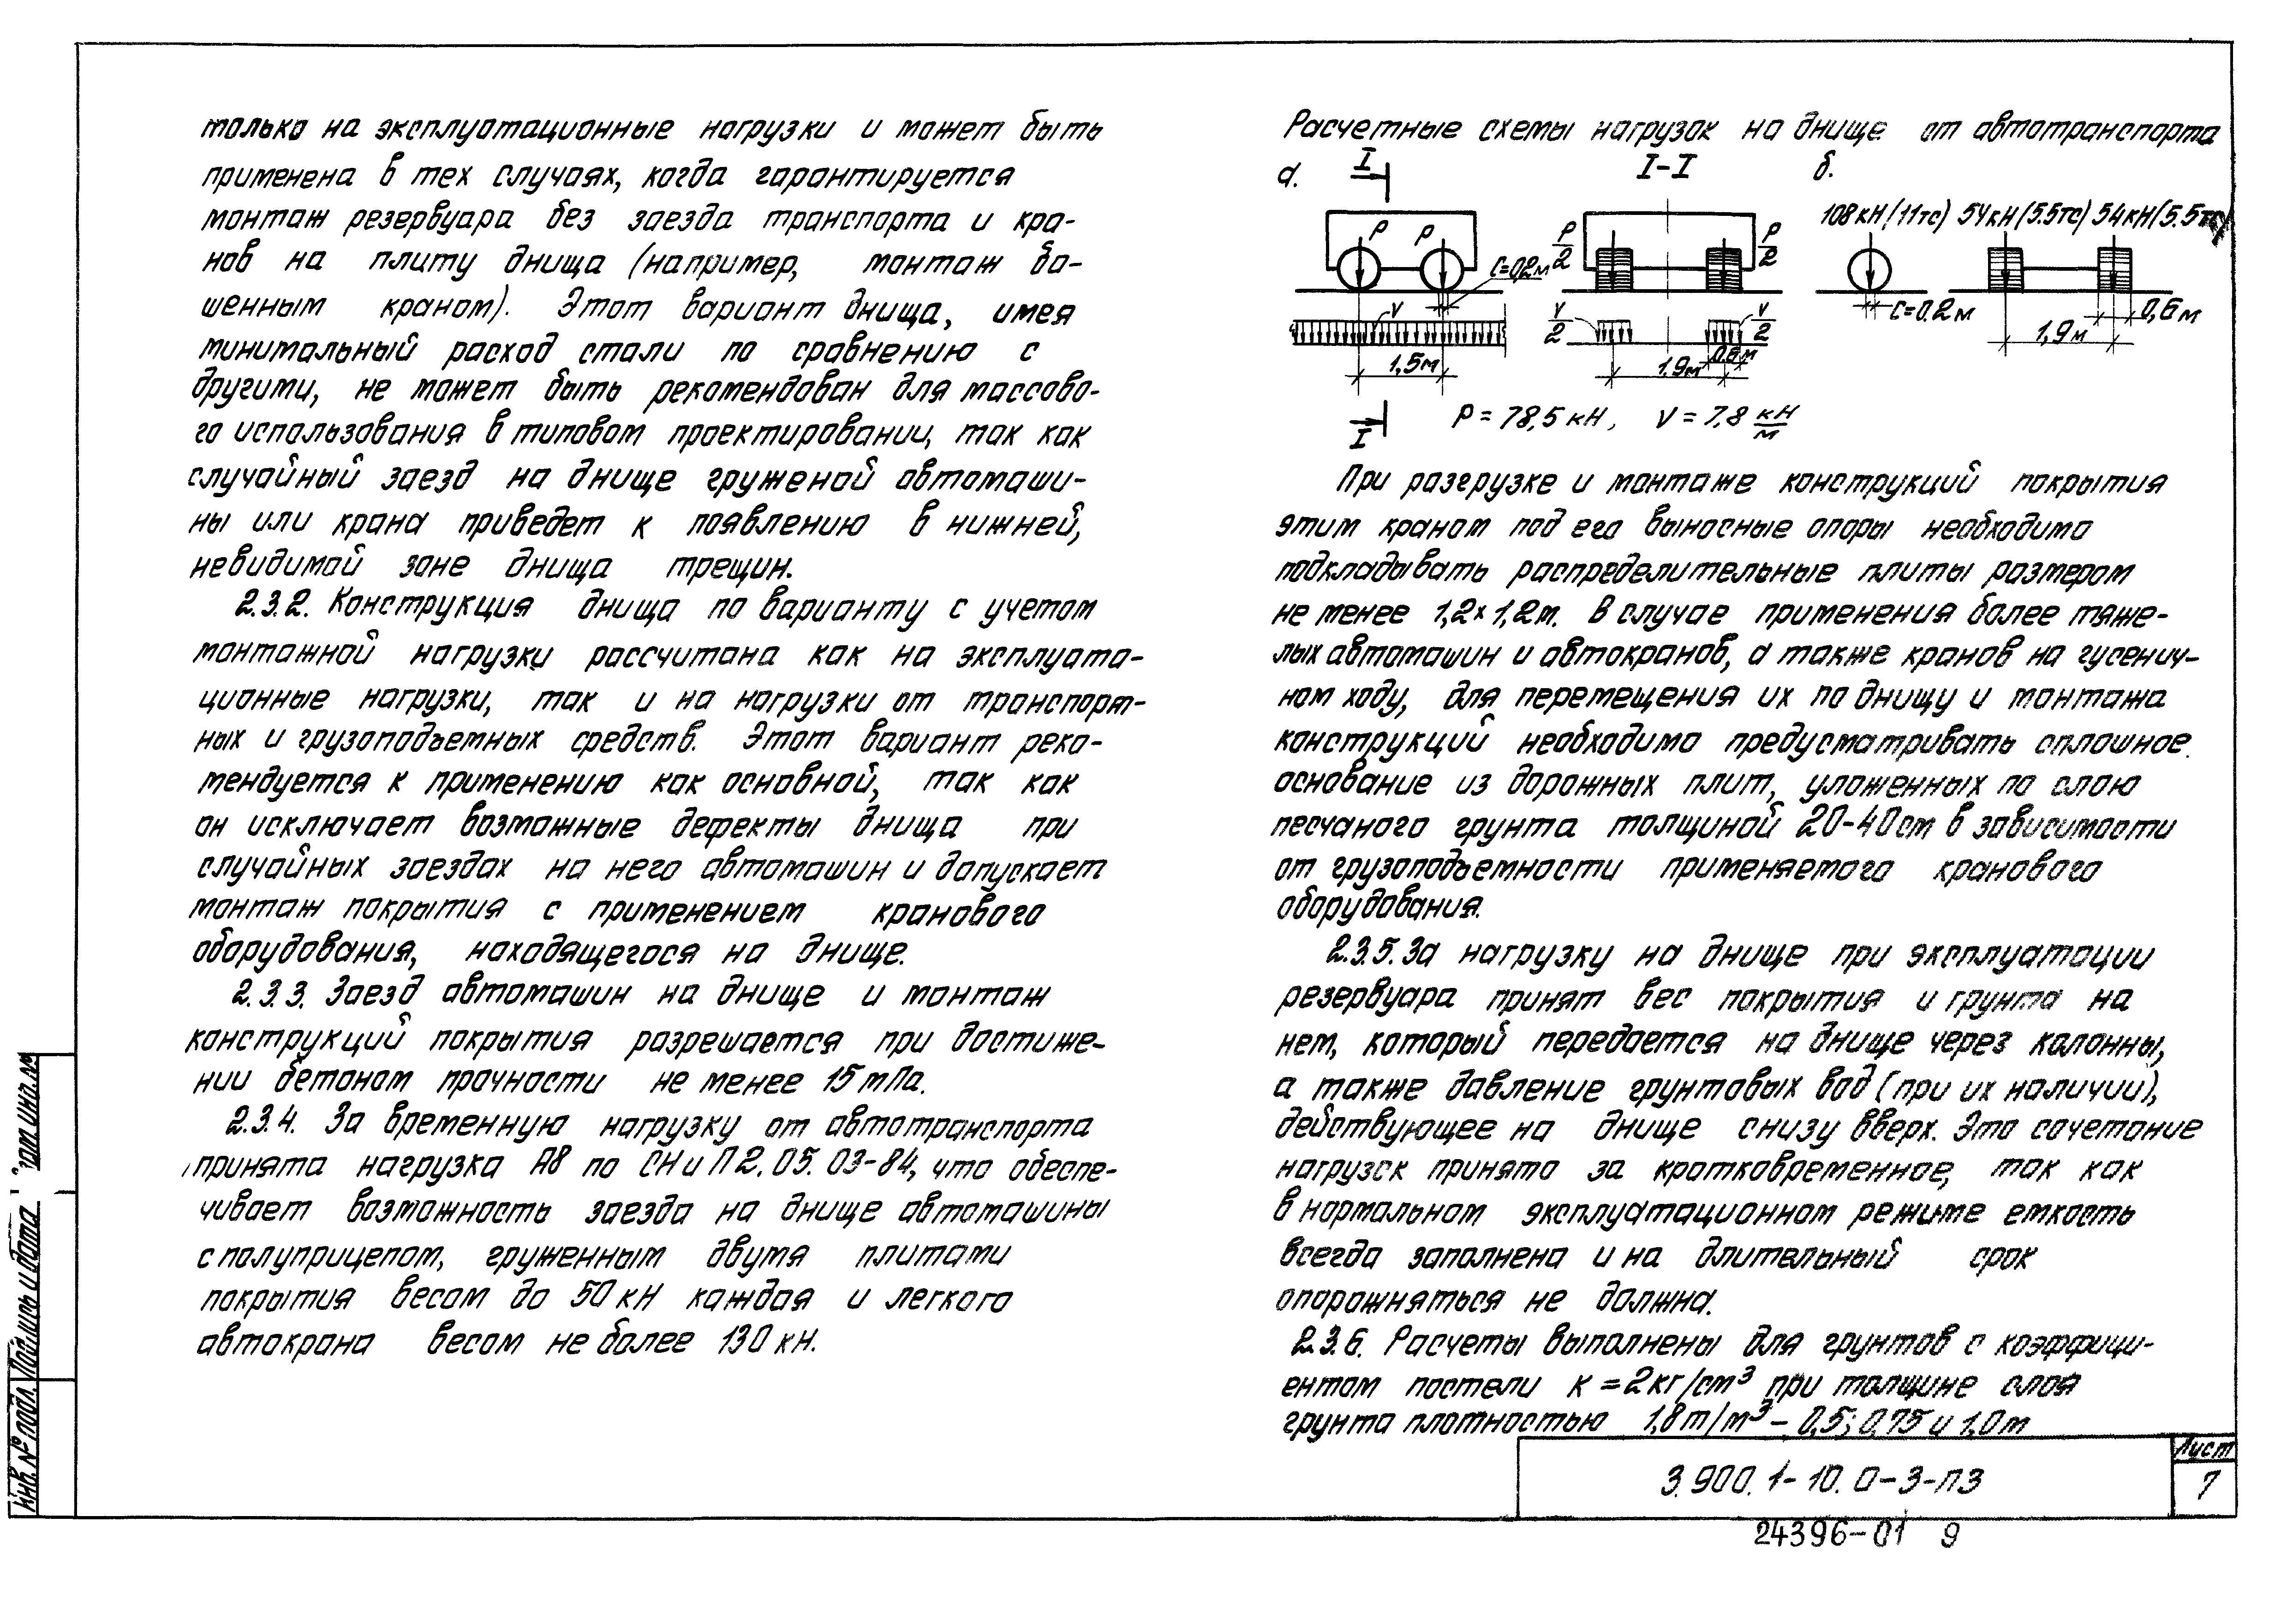 только на эксплуатационные нагрузки и может быть
применена в тех случаях, когда гарантируется
монтаж резервуара без заезда транспорта и кра-
нов на плиту днища (например, монтаж ба-
шенным краном). Этот вариант днища, имея
минимальный расход стали по сравнению с
другими, не может быть рекомендован для массово-
го использования в типовом проектировании, так как
случайный заезд на днище груженой автомаши-
ны или крана приведет к появлению в нижней,
невидимой зоне днища трещин.
2.3.2. Конструкция днища по варианту с учетом
монтажной нагрузки рассчитана как на эксплуата-
ционные нагрузки, так и на нагрузки от транспорт-
ных и грузоподъемных средств. Этот вариант реко-
мендуется к применению как основной, так как
он исключает возможные дефекты днища при
случайных заездах на него автомашин и допускает
монтаж покрытия с применением кранового
оборудования, находящегося на днище.
2.3.3. Заезд автомашин на днище и монтаж
конструкций покрытия разрешается при достиже-
нии бетоном прочности не менее 15 мПа.
2.3.4. За временную нагрузку от автотранспорта
принята нагрузка А8 по СНиП 2.05.03-84, что обеспе-
чивает возможность заезда на днище автомашины
с полуприцепом, груженным двумя плитами
покрытия весом до 50 кН каждая и легкого
автокрана весом не более 130 кН.
Расчетные схемы нагрузок на днище от автотранспорта
а. I I-I б.
108 кН (11тс) 54кН (5.5тс) 54кН (5.5тс)
P P P/2 P/2
C=0,2м
V V/2 V/2
C=0.2м 0,6м
1,5м 0.6м 1.9м 1,9м
I P = 78,5 кН, V = 7,8 кН/м
При разгрузке и монтаже конструкций покрытия
этим краном под его выносные опоры необходимо
подкладывать распределительные плиты размером
не менее 1,2×1,2м. В случае применения более тяже-
лых автомашин и автокранов, а также кранов на гусенич-
ном ходу, для перемещения их по днищу и монтажа
конструкций необходимо предусматривать сплошное
основание из дорожных плит, уложенных по слою
песчаного грунта толщиной 20-40см в зависимости
от грузоподъемности применяемого кранового
оборудования.
2.3.5. За нагрузку на днище при эксплуатации
резервуара принят вес покрытия и грунта на
нем, который передается на днище через колонны,
а также давление грунтовых вод (при их наличии),
действующее на днище снизу вверх. Это сочетание
нагрузок принято за кратковременное, так как
в нормальном эксплуатационном режиме емкость
всегда заполнена и на длительный срок
опорожняться не должна.
2.3.6. Расчеты выполнены для грунтов с коэффици-
ентом постели к = 2кг/см³ при толщине слоя
грунта плотностью 1,8т/м³ - 0,5; 0,75 и 1,0м
3.900.1-10.0-3-ПЗ
Лист
7
24396-01 9
Инв. № подл.
Подпись и дата